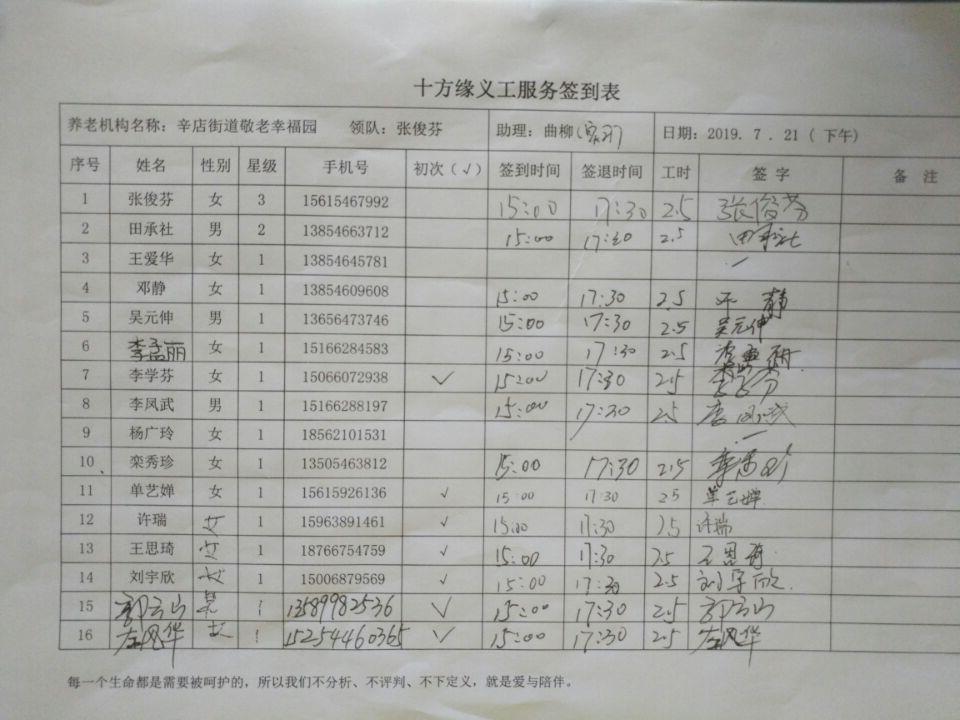 十方缘义工服务签到表
养老机构名称：辛店街道敬老幸福园 领队：张俊芬 助理：曲柳 日期：2019．7．21（下午）
序号 姓名 性别 星级 手机号 初次（√） 签到时间 签退时间 工时 签字 备注
1 张俊芬 女 3 15615467992 15:00 17:30 2.5 张俊芬
2 田承社 男 2 13854663712 15:00 17:30 2.5 田承社
3 王爱华 女 1 13854645781
4 邓静 女 1 13854609608 15:00 17:30 2.5 邓静
5 吴元伸 男 1 13656473746 15:00 17:30 2.5 吴元伸
6 李孟丽 女 1 15166284583 15:00 17:30 2.5
7 李学芬 女 1 15066072938 √ 15:00 17:30 2.5 李学芬
8 李凤武 男 1 15166288197 15:00 17:30 2.5 李凤武
9 杨广玲 女 1 18562101531
10 栾秀珍 女 1 13505463812 15:00 17:30 2.5
11 单艺婵 女 1 15615926136 √ 15:00 17:30 2.5 单艺婵
12 许瑞 女 1 15963891461 √ 15:00 17:30 2.5 许瑞
13 王思琦 女 1 18766754759 √ 15:00 17:30 2.5 王思琦
14 刘宇欣 女 1 15006879569 √ 15:00 17:30 2.5 刘宇欣
15 郭云山 男 1 13589982536 √ 15:00 17:30 2.5 郭云山
16 左凤华 女 1 15254460365 √ 15:00 17:30 2.5 左凤华
每一个生命都是需要被呵护的，所以我们不分析、不评判、不下定义，就是爱与陪伴。